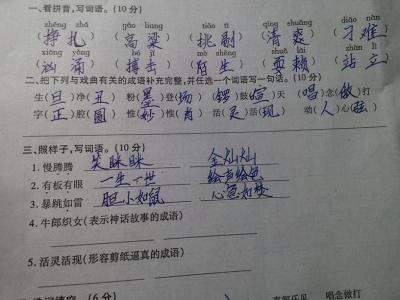 一、看拼音,写词语。(10分)
zhēng zhá gāo liang tiāo tī qīng shuǎng diāo nàn
挣扎 高粱 挑剔 清爽 刁难
xiōng yǒng bó jī mò shēng shuǎ lài zhàn lì
汹涌 搏击 陌生 耍赖 站立
二、把下列与戏曲有关的成语补充完整,并任选一个词语写一句话。(10分)
生(旦)净(丑) 粉(墨)登(场) (锣)鼓(喧)天 唱(念)做(打)
字(正)腔(圆) 惟(妙)惟(肖) 活(灵)活(现) 动(人)心(弦)
三、照样子,写词语。(10分)
1. 慢腾腾 笑眯眯 金灿灿
2. 有板有眼 一生一世 绘声绘色
3. 暴跳如雷 胆小如鼠 心急如焚
4. 牛郎织女(表示神话故事的成语)
5. 活灵活现(形容剪纸逼真的成语)
(6分)
喜闻乐见 唱念做打